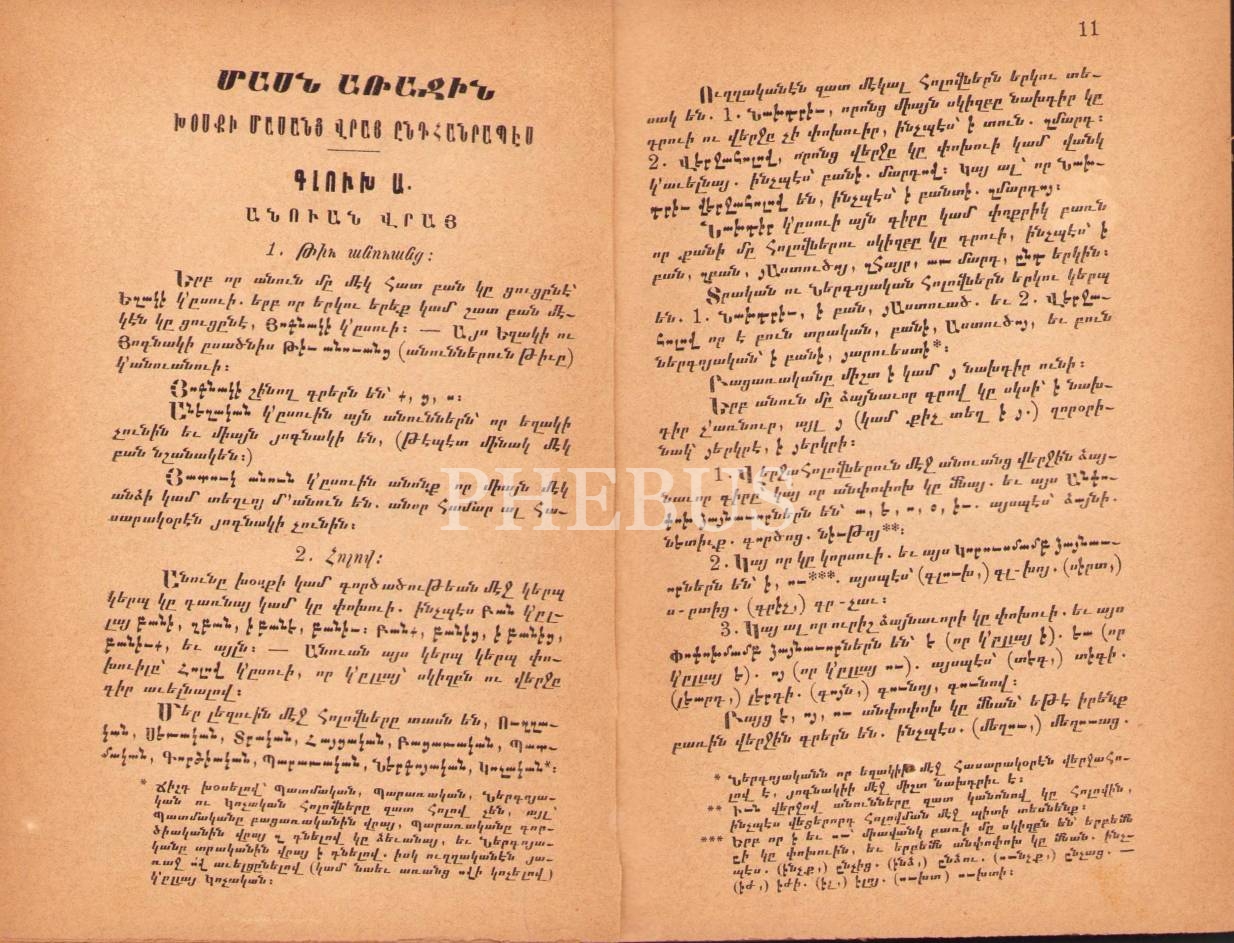 ՄԱՍՆ ԱՌԱՋԻՆ
ԽՕՍՔԻ ՄԱՍԱՆՑ ՎՐԱՅ ԸՆԴՀԱՆՐԱՊԷՍ
ԳԼՈՒԽ Ա.
ԱՆՈՒԱՆ ՎՐԱՅ
1. Թիւ անուանց։
Երբ որ անուն մը մէկ հատ բան կը ցուցընէ՝
Եզակի կ'ըսուի. երբ որ երկու երեք կամ շատ բան մէ-
կէն կը ցուցընէ, Յոգնակի կ'ըսուի։ — Այս Եզակի ու
Յոգնակի ըսածնիս Թիւ անուանց (անուններուն թիւը)
կ'անուանուի։
Յոգնակի շինող գրերն են՝ ք, ց, ս։
Անեզական կ'ըսուին այն անուններն՝ որ եզակի
չունին եւ միայն յոգնակի են, (թէպէտ մինակ մէկ
բան նշանակեն։)
Յատուկ անուն կ'ըսուին անոնք որ միայն մէկ
անձի կամ տեղւոյ մ'անուն են. անոր համար ալ հա-
սարակօրէն յոգնակի չունին։
2. Հոլով։
Անունը խօսքի կամ գործածութեան մէջ կերպ
կերպ կը դառնայ կամ կը փոխուի. ինչպէս Բան կ'ըլ-
լայ բանի, զբան, ի բանէ, բանիւ։ Բանք, բանից, ի բանից,
բանիւք, եւ այլն։ — Անուան այս կերպ կերպ փո-
խուիլը՝ Հոլով կ'ըսուի, որ կ'ըլլայ՝ սկիզբն ու վերջը
գիր աւելնալով։
Մեր լեզուին մէջ հոլովները տասն են, Ուղղա-
կան, Սեռական, Տրական, Հայցական, Բացառական, Պատ-
մական, Գործիական, Պարառական, Ներգոյական, Կոչական*։
* Ճիշդ խօսելով՝ Պատմական, Պարառական, Ներգոյա-
կան ու Կոչական հոլովները զատ հոլով չեն, այլ՝
Պատմականը բացառականին վրայ, Պարառականը գոր-
ծիականին վրայ զ դնելով կը ձեւանայ, եւ Ներգոյա-
կանը տրականին վրայ ի դնելով. իսկ ուղղականէն յա-
ռաջ ո՛վ աւելցընելով (կամ նաեւ առանց ո՛վի կոչելով)
կ'ըլլայ Կոչական։
11
Ուղղականէն զատ մէկալ հոլովներն երկու տե-
սակ են. 1. Նախդրիւ, որոնց միայն սկիզբը նախդիր կը
դրուի ու վերջը չի փոխուիր, ինչպէս՝ ի տուն. զմարդ։
2. Վերջահոլով, որոնց վերջը կը փոխուի կամ վանկ
կ'աւելնայ. ինչպէս՝ բանի. մարդով։ Կայ ալ՝ որ Նախ-
դրիւ վերջահոլով են, ինչպէս՝ ի բանտի. զմարդոյ։
Նախդիր կ'ըսուի այն գիրը կամ փոքրիկ բառն
որ քանի մը հոլովներու սկիզբը կը դրուի, ինչպէս՝ ի
բան, զբան, յԱստուծոյ, զՀայր, առ մարդ, ընդ երկին։
Տրական ու Ներգոյական հոլովներն երկու կերպ
են. 1. Նախդրիւ, ի բան, յԱստուած. եւ 2. Վերջա-
հոլով որ է բուն տրական, բանի, Աստուծոյ, եւ բուն
ներգոյական՝ ի բանի, յարուեստի*։
Բացառականը միշտ ի կամ յ նախդիր ունի։
Երբ անուն մը ձայնաւոր գրով կը սկսի՝ ի նախ-
դիր չ'առնուր, այլ յ (կամ քիչ տեղ է ց.) զորօրի-
նակ՝ յերկրէ, ի յերկրի։
1. Վերջահոլովներուն մէջ անուանց վերջին ձայ-
նաւոր գիրը՝ կայ որ անփոփոխ կը մնայ. եւ այս Անփո-
փոխ ձայնաւորներն են՝ ա, ե, ո, օ, իւ. այսպէս՝ ձայնի.
նետիւք. գործոց. նիւթոյ**։
2. Կայ որ կը կորսուի. եւ այս Կորուսմամբ ձայնաւ-
որներն են՝ ի, ու***. այսպէս՝ (գլուխ,) գլ-խոյ. (սիրտ,)
ս-րտից. (գրիչ,) գր-չաւ։
3. Կայ ալ որ ուրիշ ձայնաւորի կը փոխուի. եւ այս
Փոփոխմամբ ձայնաւորներն են՝ է (որ կ'ըլլայ ի). եա (որ
կ'ըլլայ ե). ոյ (որ կ'ըլլայ ու). այսպէս՝ (տէգ,) տիգի.
(լեարդ,) լերդի. (գոյն,) գունոյ, գունով։
Բայց է, ոյ, ու անփոփոխ կը մնան՝ եթէ իրենք
բառին վերջին գրերն են. ինչպէս. (մեղու,) մեղուաց.
* Ներգոյականն որ եզակիի մէջ հասարակօրէն վերջահո-
լով է, յոգնակիի մէջ միշտ նախդրիւ է։
** Իւն վերջով անունները զատ կանոնով կը հոլովին,
ինչպէս վեցերորդ հոլովման մէջ պիտի տեսնենք։
*** Երբ որ ի եւ ու՝ միավանկ բառի մը սկիզբն են՝ երբեմն
ըի կը փոխուին, եւ երբեմն անփոփոխ կը մնան. ինչ-
պէս. (ինչք,) ընչից. (ինձ,) ընձու. (ունչք,) ընչաց. —
(իժ,) իժի. (իլ,) իլոյ. (ուխտ) ուխտի։
PHEBUS